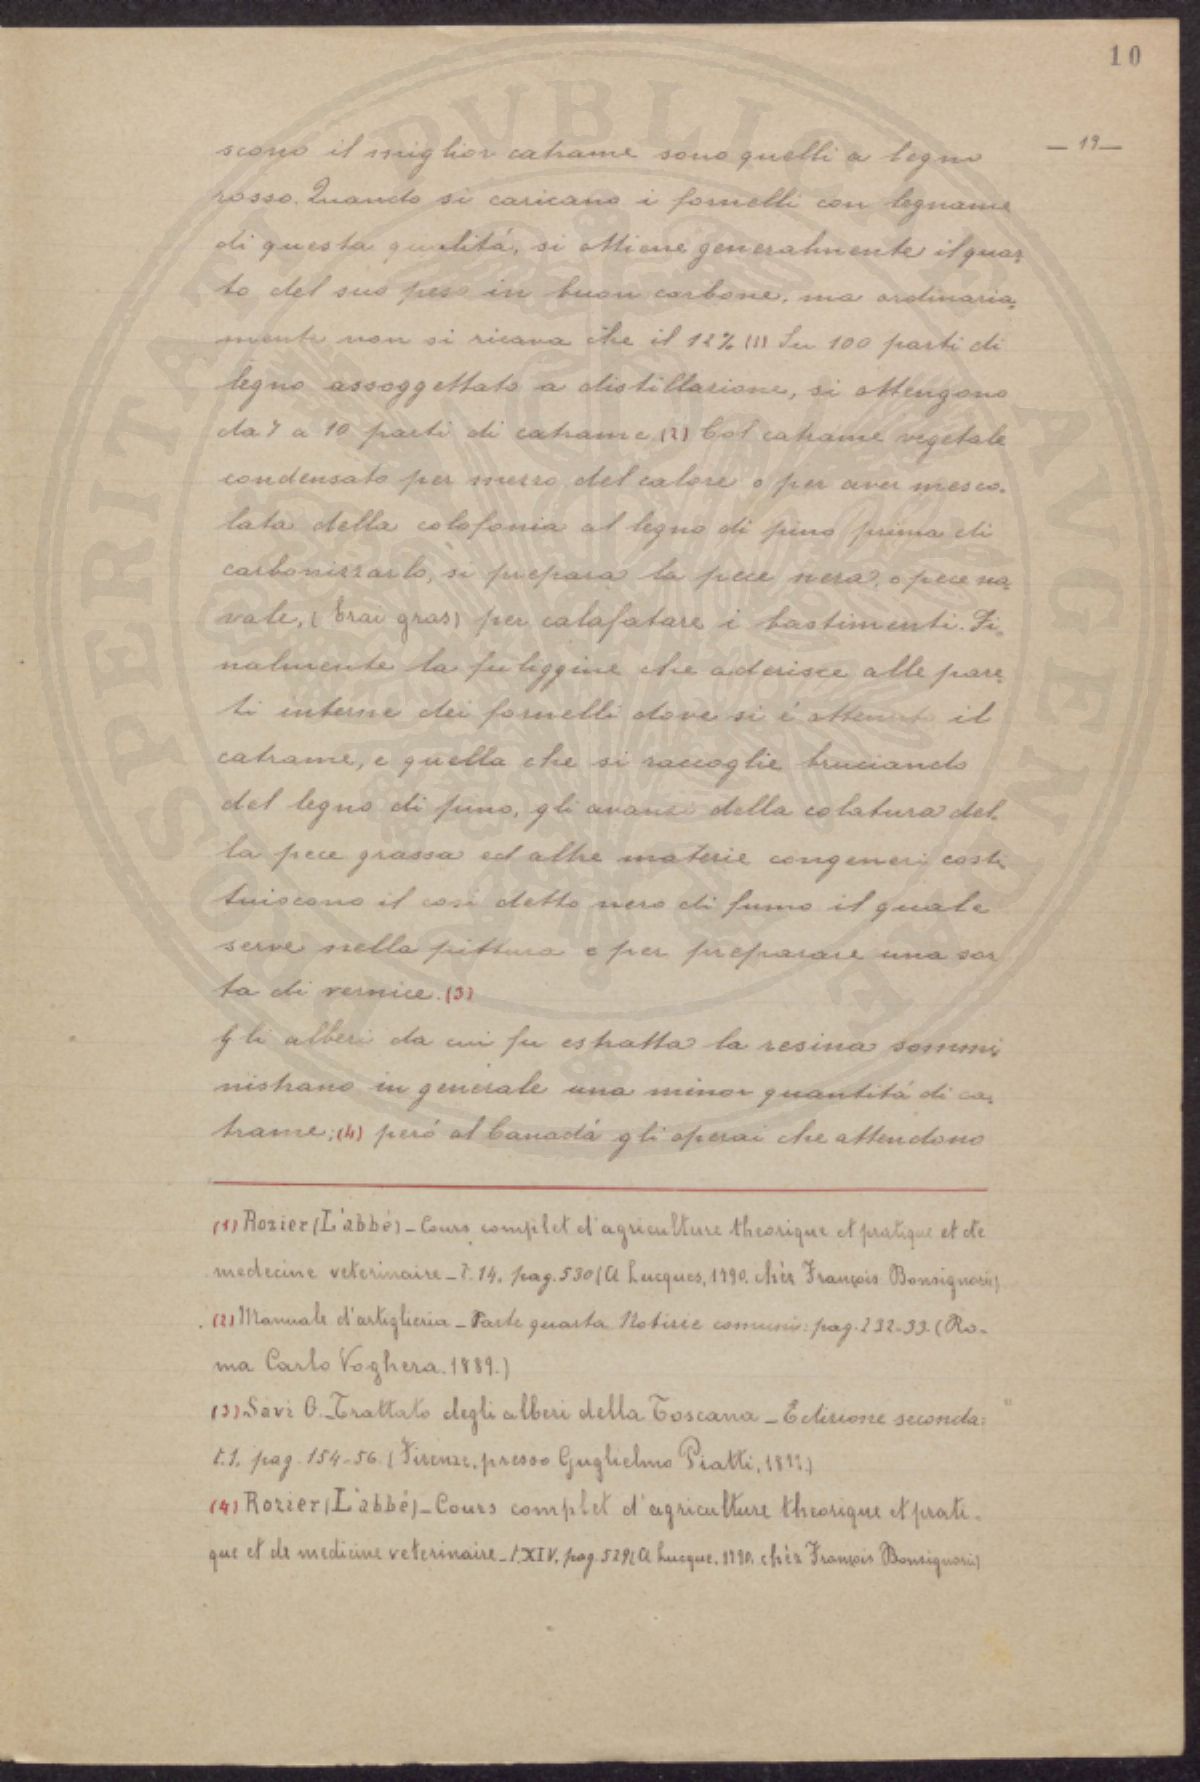 10
— 19 —
scono il miglior catrame sono quelli a legno
rosso. Quando si caricano i fornelli con legname
di questa qualitá, si ottiene generalmente il quar-
to del suo peso in buon carbone, ma ordinaria-
mente non si ricava che il 12% (1) Su 100 parti di
legno assoggettato a distillazione, si ottengono
da 7 a 10 parti di catrame (2) Col catrame vegetale
condensato per mezzo del calore o per aver mesco-
lata della colofonia al legno di pino prima di
carbonizzarlo, si prepara la pece nera, o pece na-
vale, (brai gras) per calafatare i bastimenti. Fi-
nalmente la fuliggine che aderisce alle pare-
ti interne dei fornelli dove si é ottenuto il
catrame, e quella che si raccoglie bruciando
del legno di pino, gli avanzi della colatura del-
la pece grassa ed altre materie congeneri costi-
tuiscono il cosi detto nero di fumo il quale
serve nella pittura e per preparare una sor
ta di vernice. (3)
Gli alberi da cui fu estratta la resina sommi-
nistrano in generale una minor quantitá di ca-
trame; (4) peró al Canadá gli operai che attendono
(1) Rozier (L'abbé) _ Cours complet d'agriculture theorique et pratique et de
medecine veterinaire _ T. 14, pag. 530 (A Lucques, 1790. chèz François Bonsignori)
(2) Manuale d'artiglieria _ Parte quarta Notizie comuni: pag. 232-33 (Ro-
ma Carlo Voghera. 1889.)
(3) Savi G. _ Trattato degli alberi della Toscana _ Edizione seconda:
t. 1. pag. 154-56. (Firenze, presso Guglielmo Piatti, 1811.)
(4) Rozier (L'abbé) _ Cours complet d'agriculture theorique et prati-
que et de medicine veterinaire _ t. XIV, pag. 529 (A Lucque. 1790. chèz François Bonsignori)
PERITAT PVBLIC AVGENDAE